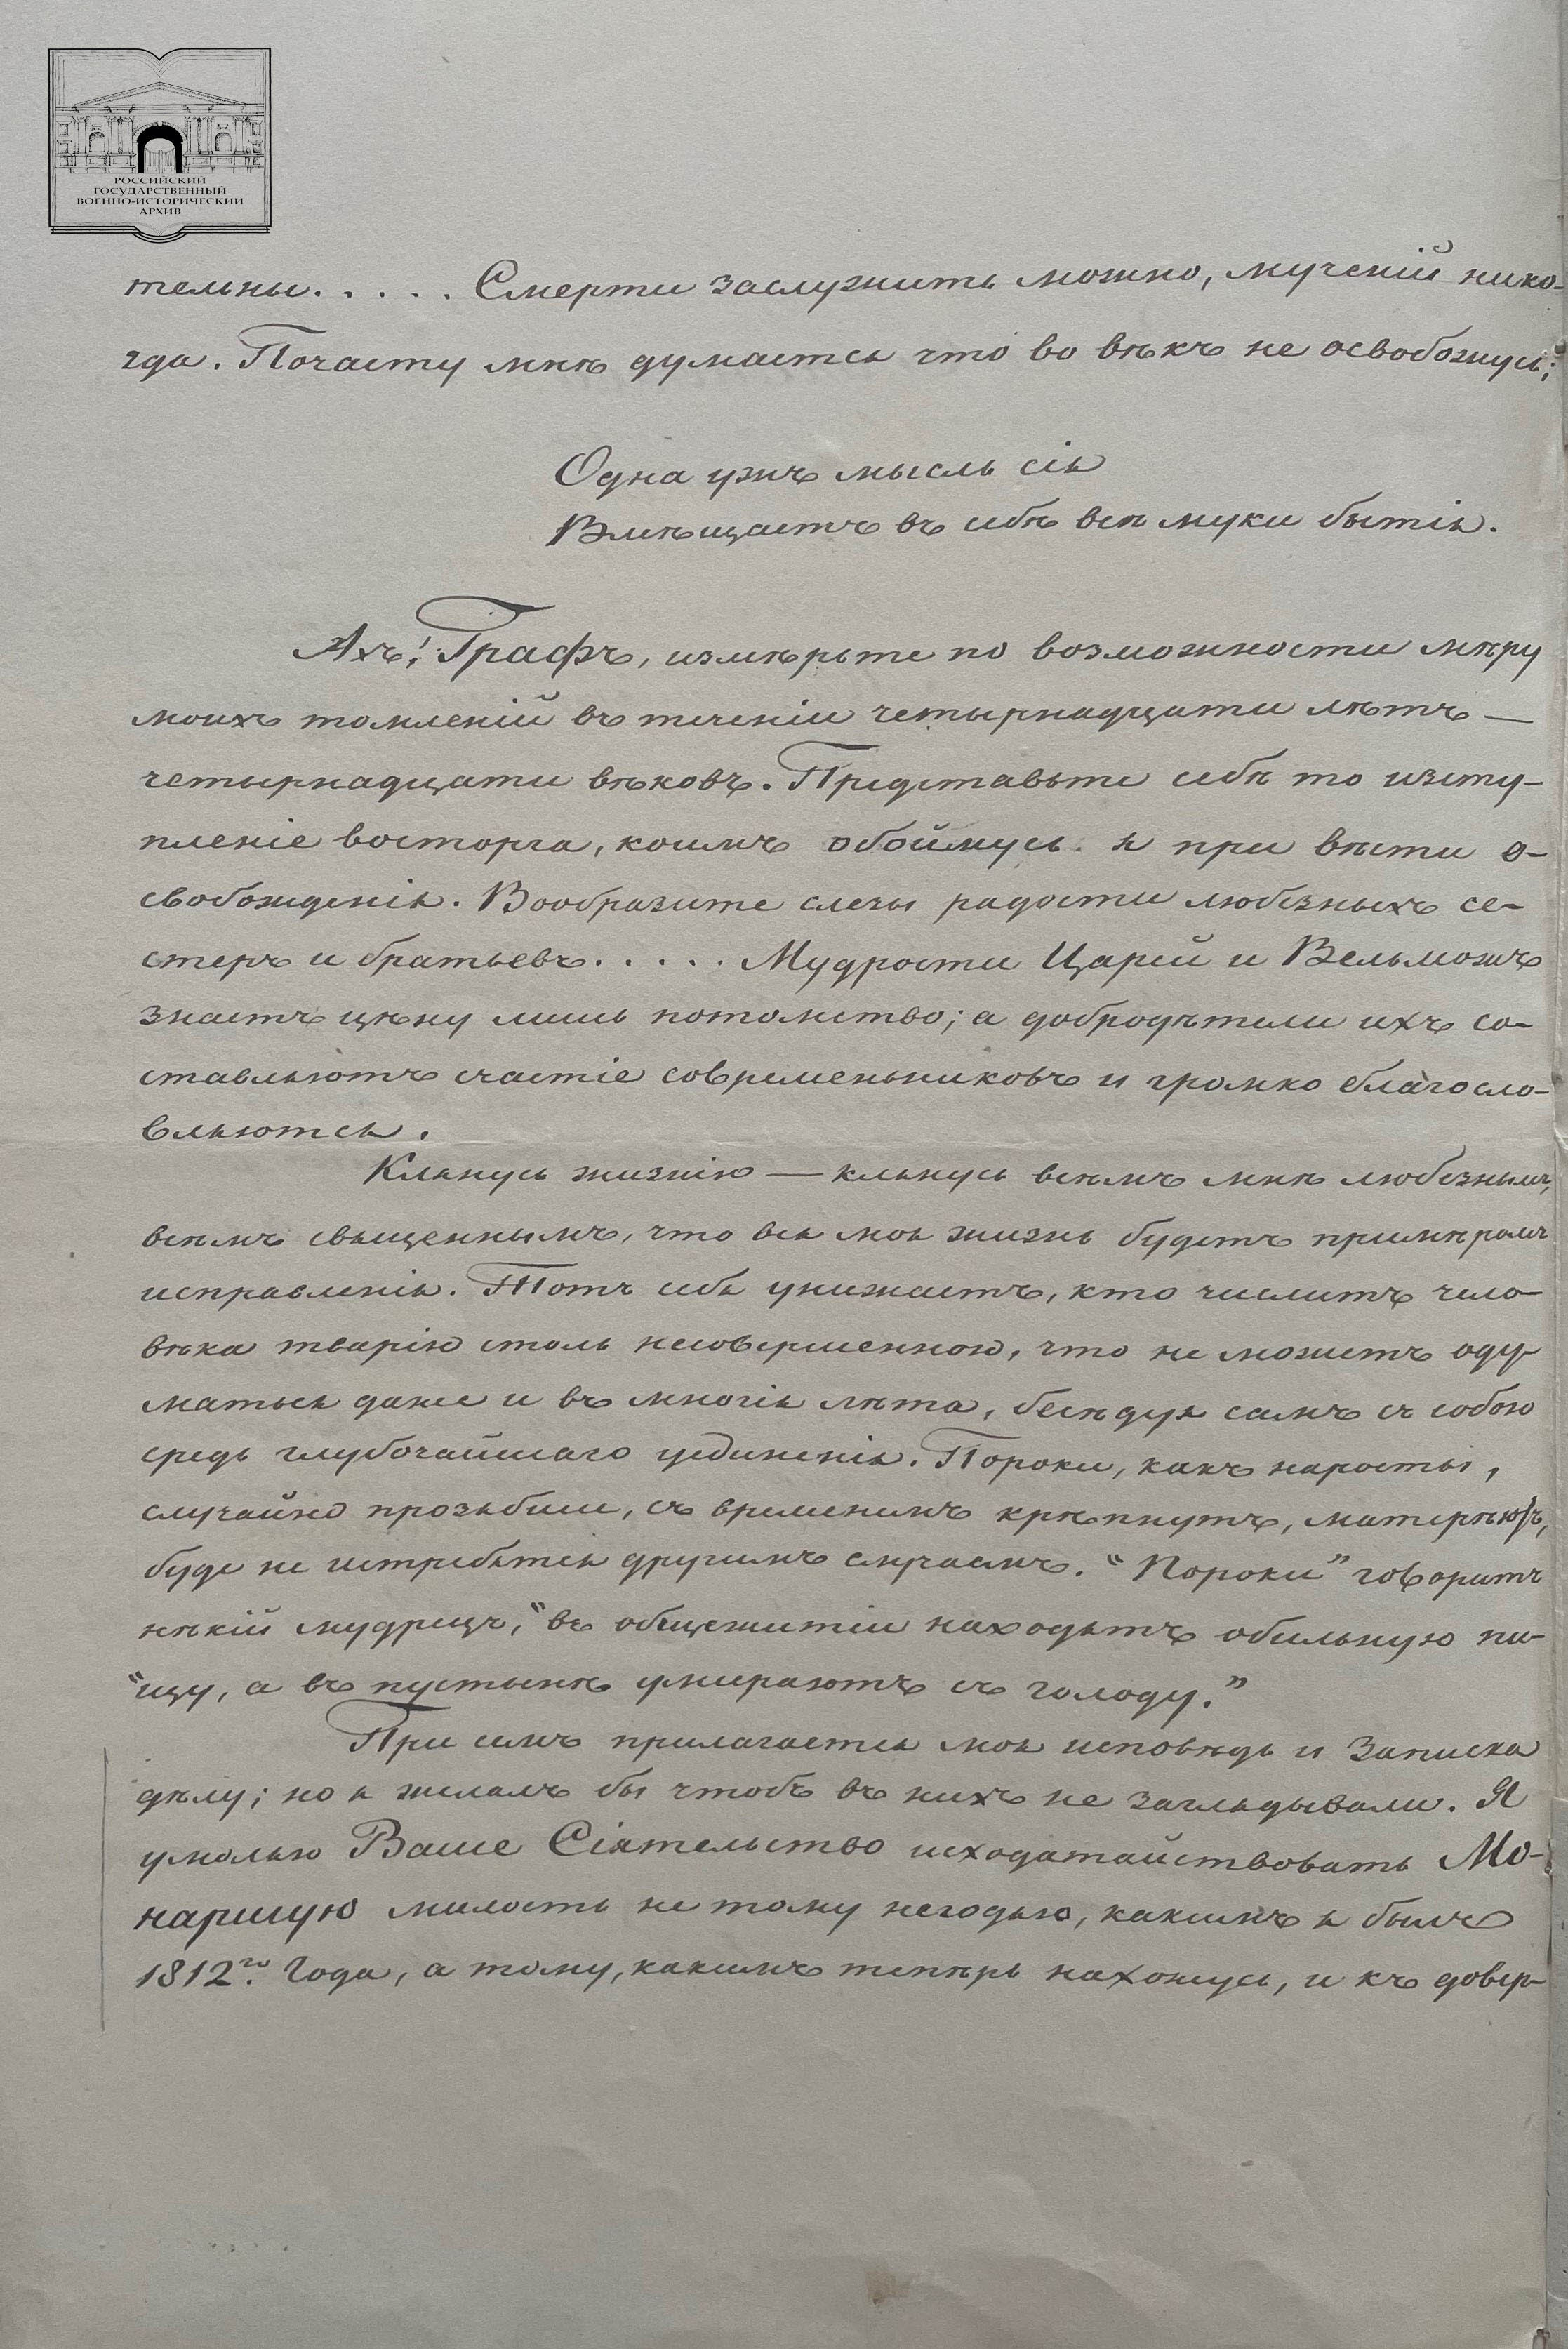 РОССИЙСКИЙ
ГОСУДАРСТВЕННЫЙ
ВОЕННО-ИСТОРИЧЕСКИЙ
АРХИВ
тельны. . . . . Смерти заслужить можно, мученій нико-
гда. Почасту мнѣ думается что во вѣкъ не освобожусь;
Одна ужъ мысль сія
Вмѣщаетъ въ себѣ всѣ муки бытія.
Ахъ! Графъ, измѣрьте по возможности мѣру
моихъ томленій въ теченіи четырнадцати лѣтъ —
четырнадцати вѣковъ. Представьте себѣ то изсту-
пленіе восторга, коимъ обоймусь я при вѣсти о-
свобожденія. Вообразите слезы радости любезныхъ се-
стеръ и братьевъ. . . . . Мудрости Царей и Вельможъ
знаетъ цѣну лишь потомство; а добродѣтели ихъ со-
ставляютъ счастіе современьниковъ и громко благосло-
вляются.
Клянусь жизнію — клянусь всѣмъ мнѣ любезнымъ,
всѣмъ священнымъ, что вся моя жизнь будетъ примѣромъ
исправленія. Тотъ себя унижаетъ, кто числитъ чело-
вѣка тварію столь несовершенною, что не можетъ оду-
маться даже и въ многія лѣта, бесѣдуя самъ съ собою
средь глубочайшаго уединенія. Пороки, какъ наросты,
случайно прозябши, съ временемъ крѣпнутъ, матерѣютъ,
буде не истребятся другимъ случаемъ. “Пороки” говоритъ
нѣкій мудрецъ, “въ общежитіи находятъ обильную пи-
“щу, а въ пустынѣ умираютъ съ голоду.”
При семъ прилагается моя исповѣдь и Записка
дѣлу; но я желалъ бы чтобъ въ нихъ не заглядывали. Я
умоляю Ваше Сіятельство исходатайствовать Мо-
наршую милость не тому негодяю, какимъ я былъ
1812го. Года, а тому, какимъ теперь нахожусь, и къ довер-